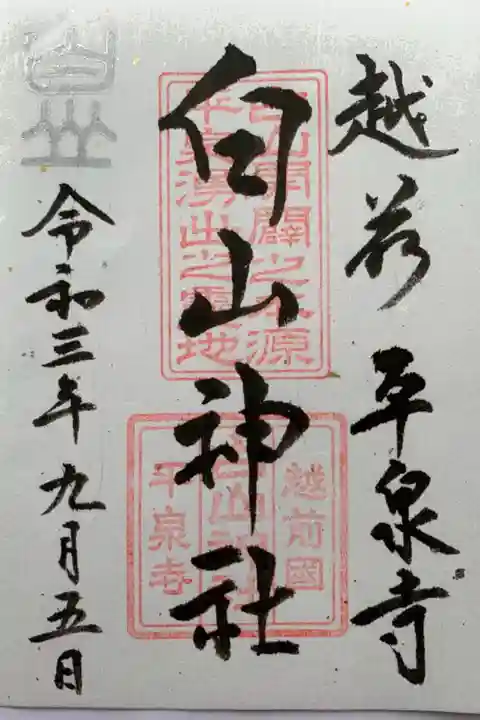 越前 平泉寺
白山神社
令和三年九月五日
白山
白山開闢之本源
平泉湧出之靈地
越前國
白山神社
平泉寺